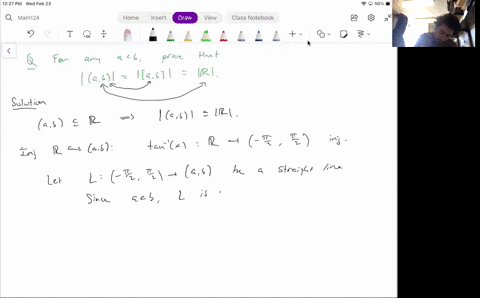 12:27 PM Wed Feb 23
50%
Math124
Home Insert Draw View Class Notebook
Q For any a<b, prove that
|(a,b)| = |[a,b]| = |ℝ|.
Solution
(a,b) ⊆ ℝ ⟹ |(a,b)| ≤ |ℝ|.
Inj ℝ ↪ (a,b): tan⁻¹(x) : ℝ → (-π/2, π/2) inj.
Let L : (-π/2, π/2) → (a,b) be a straight line
Since a<b, L is